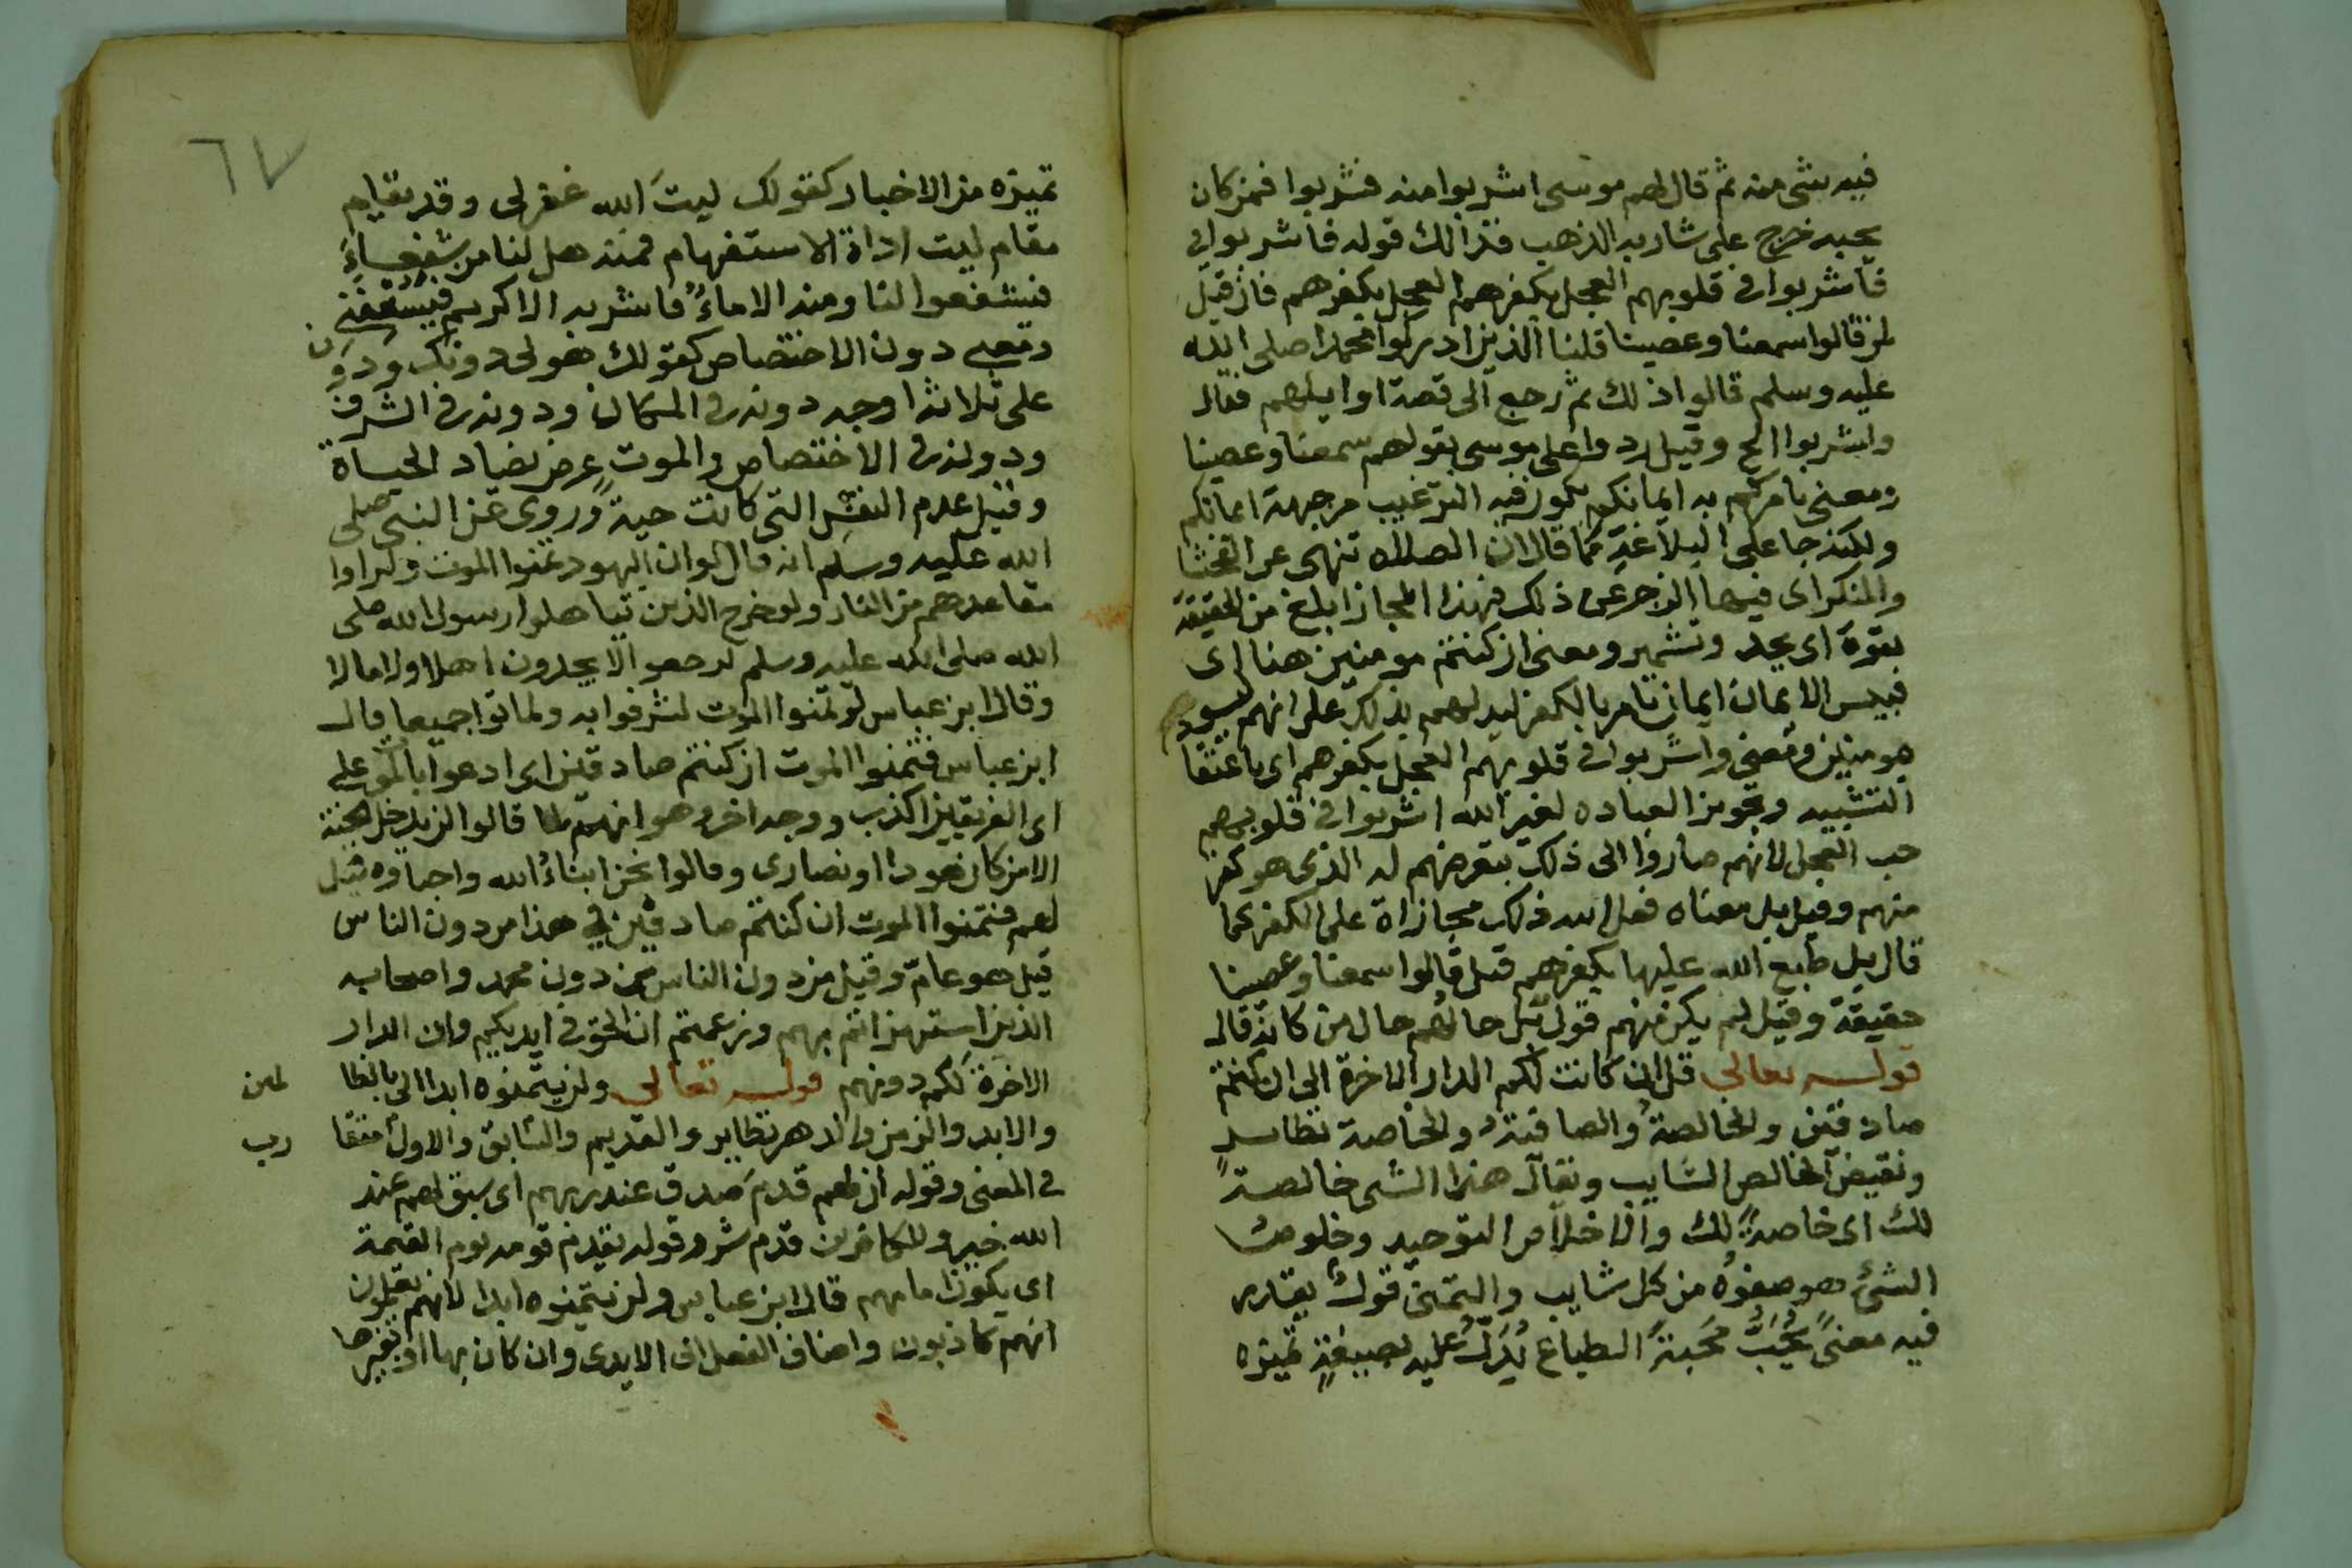 فيه شى منه ثم قال لهم موسى اشربوا منه فشربوا فمن كان
يحبه خرج على شاربه الذهب فذالك قوله فاشربوا فى
فاشربوا فى قلوبهم العجل بكفرهم العجل بكفرهم فان قيل
لم قالوا سمعنا وعصينا قلنا الذين ادركوا محمدا صلى الله
عليه وسلم قالوا ذلك ثم رجع الى قصة اوايلهم فقال
واشربوا الخ وقيل ردوا على موسى بقولهم سمعنا وعصينا
ومعنى يامركم به ايمانكم يكون فيه الترغيب من جهة ايمانكم
ولكنه جا على البلاغة كما قال ان الصلاه تنهى عن الفحشا
والمنكر اى فيها الزجر عن ذلك فهذا المجاز ابلغ من الحقيقة
بقوة اى بجد وتشمير ومعنى ان كنتم مومنين هنا اى
فبيس الايمان ايمان يامر بالكفر ليدلهم بذلك على انهم ليسوا
بمومنين ومعنى واشربوا فى قلوبهم العجل بكفرهم اى باعتقا
التشبيه وتجويز العباده لغير الله اشربوا فى قلوبهم
حب العجل لانهم صاروا الى ذلك بتعرضهم له الذى هو كفر
منهم وقيل بل معناه فعل الله ذلك مجازاة على الكفر كما
قال بل طبع الله عليها بكفرهم قيل قالوا سمعنا وعصينا
حقيقة وقيل لم يكن منهم قول بل حالهم حال من كانه قال
قوله تعالى قل ان كانت لكم الدار الاخرة الى ان كنتم
صادقين والخالصة والصافية والخاصة نظاير
ونقيض الخالص الشايب ويقال هذا الشى خالصة
لك اى خاصة لك والاخلاص التوحيد وخلوص
الشئ هو صفوه من كل شايب والتمنى قول يقدر
فيه معنى يحب محبة الطباع يدل عليه بصيغة تميزه
٦٧
تميزه من الاخبار كقولك ليت الله غفر لى وقد يقام
مقام ليت اداة الاستفهام فمنه هل لنا من شفعاء
فيشفعوا لنا ومنه الا ماء فاشربه الا كريم فيسعفنى
ومعنى دون الاختصاص كقولك هو لى دونك ودون
على ثلاثه اوجه دونه فى المكان ودونه فى الشرف
ودونه فى الاختصاص والموت عرض يضاد الحياة
وقيل عدم النفس التى كانت حية وروى عن النبى صلى
الله عليه وسلم انه قال لو ان اليهود تمنوا الموت ولراوا
مقاعدهم من النار ولو خرج الذين تباهلوا رسول الله صلى
الله صلى الله عليه وسلم لرجعوا لا يجدون اهلا ولا مالا
وقال ابن عباس لو تمنوا الموت لشرقوا به ولماتوا جميعا قال
ابن عباس فتمنوا الموت ان كنتم صادقين اى ادعوا بالموت على
اى الفريقين اكذب ووجه اخر وهو انهم لما قالوا لن يدخل الجنة
الا من كان هودا او نصارى وقالوا نحن ابناء الله واحباوه قيل
لهم فتمنوا الموت ان كنتم صادقين فى هذا من دون الناس
قيل هو عام وقيل من دون الناس من دون محمد واصحابه
الذين استهزاتم بهم وزعمتم ان الحق فى ايديكم وان الدار
الاخرة لكم دونهم قوله تعالى ولن يتمنوه ابدا الى بالظا لمين
والابد والزمن والدهر نظاير والقديم والسابق والاول متقا رب
فى المعنى وقوله ان لهم قدم صدق عند ربهم اى سبق لهم عند
الله خير وللكافرين قدم شر وقوله يقدم قومه يوم القيمة
اى يكون امامهم قال ابن عباس ولن يتمنوه ابدا لانهم يعلمون
انهم كاذبون واضاف الفعل الى الايدى وان كان بها او بغيرها